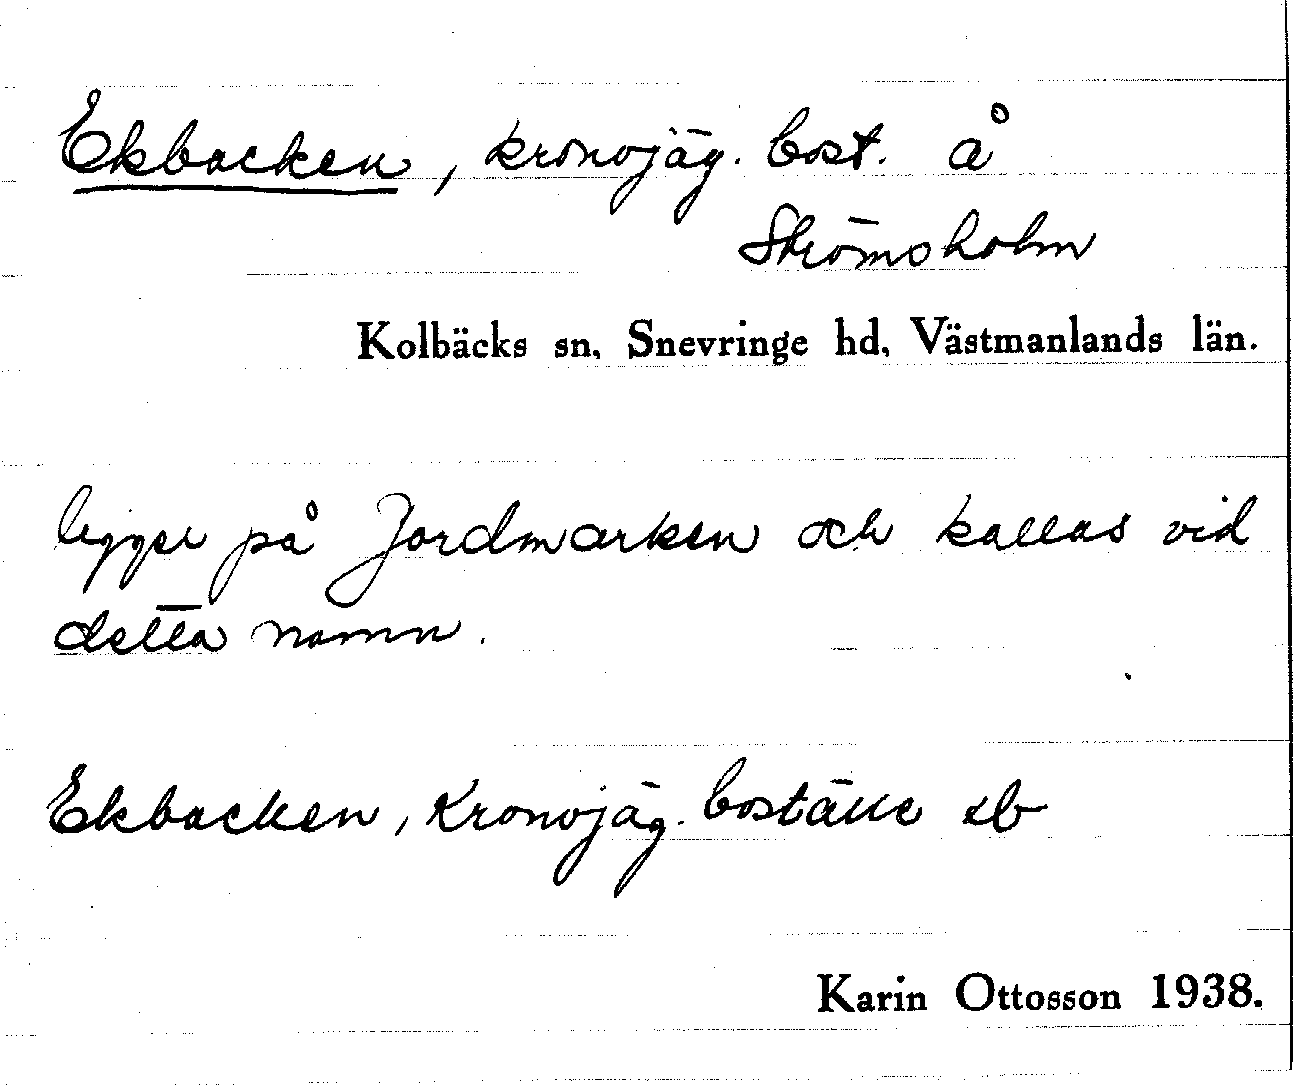 Ekbacken, kronojäg. bost. å
Strömsholm
Kolbäcks sn, Snevringe hd, Västmanlands län.
ligger på Jordmarken och kallas vid
detta namn.
Ekbacken, Kronojäg. boställe eb
Karin Ottosson 1938.